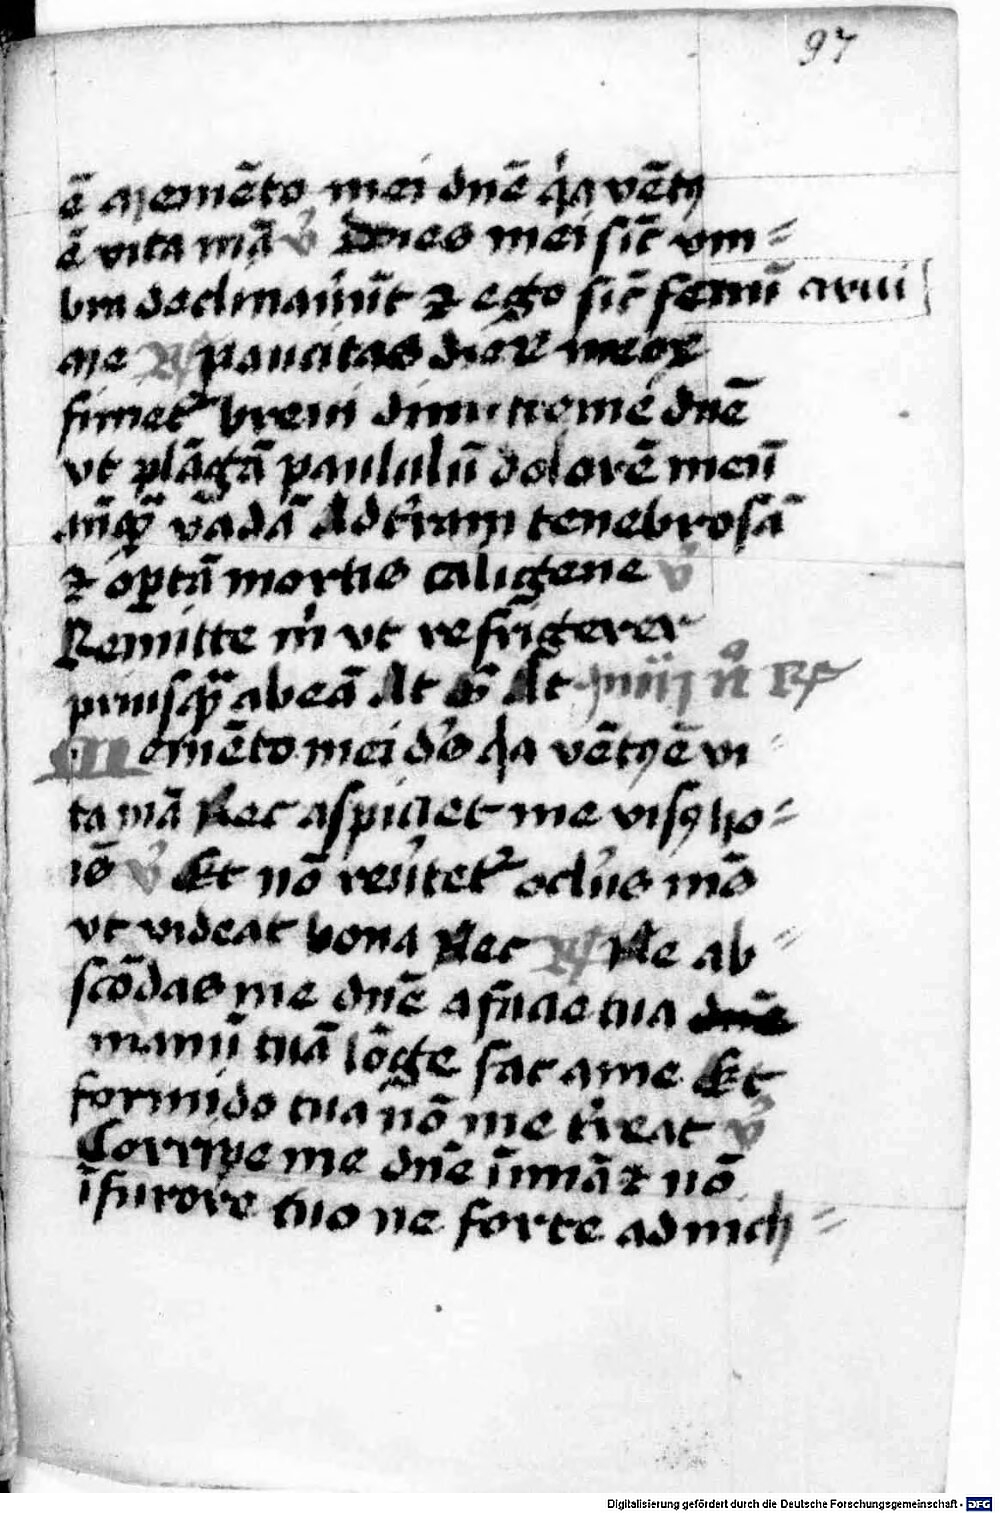 97
ē memēto mei dnē qia vētꝰ
ē vita mā v̊ Dies mei sic̄ vm=
bra declinaūut ⁊ ego sic̄ fenū arui
me R̸ paucitas dieR meoꝝ
finiet᷑ brevi dimitte me dnē
vt plāgā paululū dolorē meū
anqᷓ vadā Ad tr̄am tenebrosā
⁊ optā mortis caligene v̊
Remitte m̄ vt refrigerer
priusqᷓ abeā At At R̸
Memēto mei ds̄ qia vētꝰ ē vi
ta mā Nec aspiciet me visꝰ ho=
is̄ v̊ Et nō revt̄et᷑ oclūs mēs
vt videat bona Nec R̸ Ne ab=
scōdas me dnē a facie tua dnē
manū tuā lōge fac a me Et
formido tua nō me t̄reat v̊
Corripe me dnē ī mīa ⁊ nō
ī furore tuo ne forte ad nich=
Digitalisierung gefördert durch die Deutsche Forschungsgemeinschaft - DFG